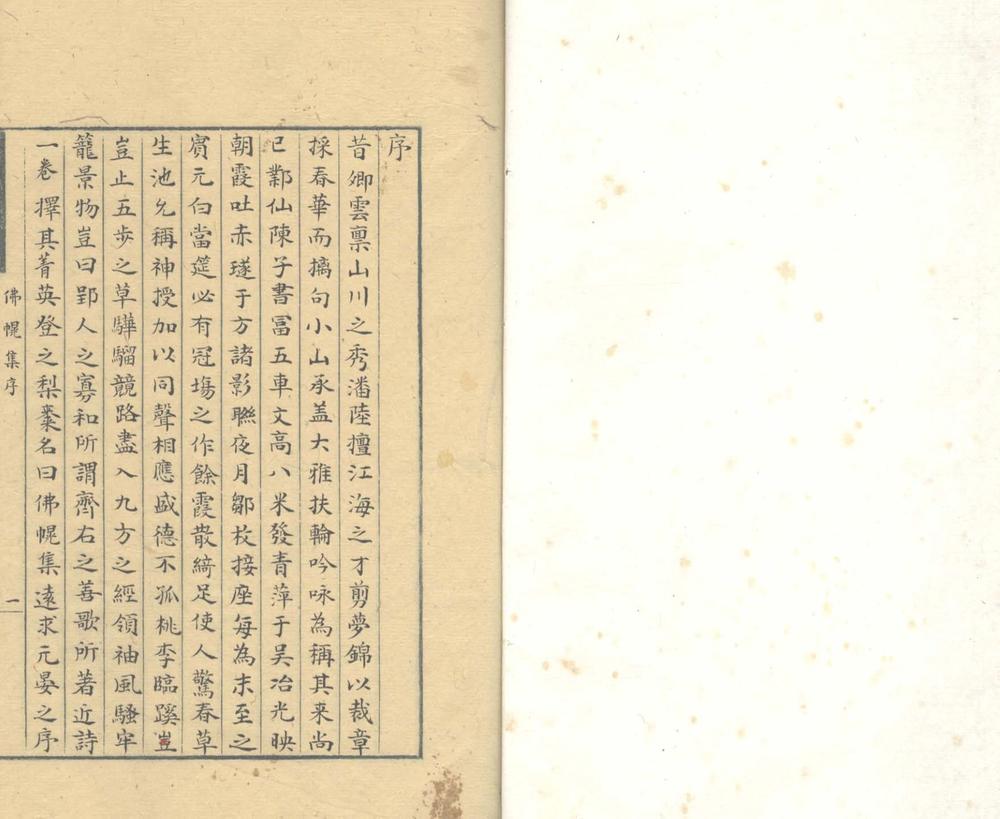 序
昔卿雲禀山川之秀潘陸擅江海之才剪夢錦以裁章
採春華而摛句小山承盖大雅扶輪吟咏為稱其来尚
已鄴仙陳子書冨五車文高八米發青萍于吴冶光映
朝霞吐赤璲于方諸影聮夜月鄒枚接座每為末至之
賔元白當筵必有冠塲之作餘霞散綺足使人驚春草
生池允稱神授加以同聲相應盛德不孤桃李臨蹊豈
豈止五歩之草驊騮競路盡入九方之經領袖風騷牢
籠景物豈曰郢人之寡和所謂齊右之善歌所著近詩
一卷擇其菁英登之梨棗名曰佛幌集逺求元晏之序
佛幌集序
一